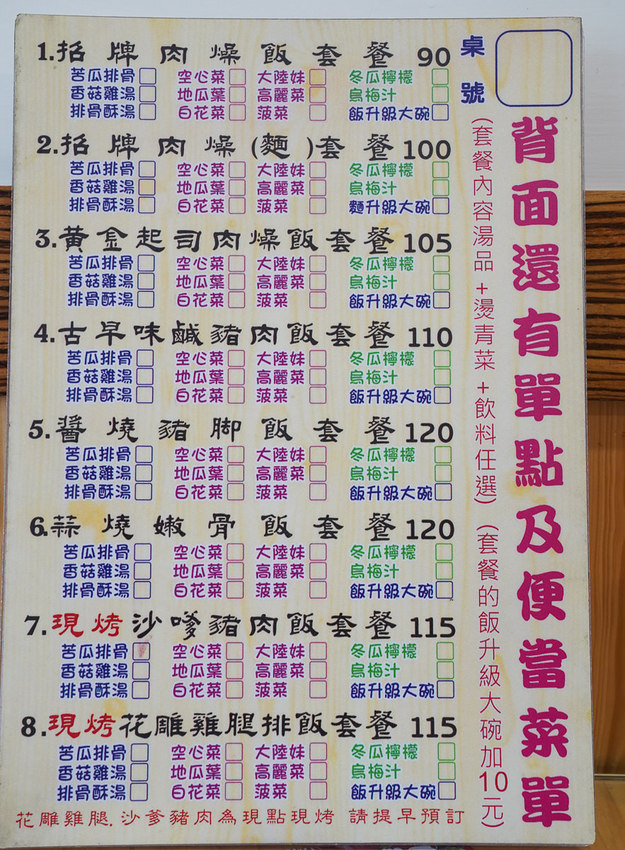 1.招牌肉燥飯套餐 90
苦瓜排骨 空心菜 大陸妹 冬瓜檸檬
香菇雞湯 地瓜葉 高麗菜 烏梅汁
排骨酥湯 白花菜 菠菜 飯升級大碗
2.招牌肉燥(麵)套餐 100
苦瓜排骨 空心菜 大陸妹 冬瓜檸檬
香菇雞湯 地瓜葉 高麗菜 烏梅汁
排骨酥湯 白花菜 菠菜 麵升級大碗
3.黃金起司肉燥飯套餐 105
苦瓜排骨 空心菜 大陸妹 冬瓜檸檬
香菇雞湯 地瓜葉 高麗菜 烏梅汁
排骨酥湯 白花菜 菠菜 飯升級大碗
4.古早味鹹豬肉飯套餐 110
苦瓜排骨 空心菜 大陸妹 冬瓜檸檬
香菇雞湯 地瓜葉 高麗菜 烏梅汁
排骨酥湯 白花菜 菠菜 飯升級大碗
5.醬燒豬腳飯套餐 120
苦瓜排骨 空心菜 大陸妹 冬瓜檸檬
香菇雞湯 地瓜葉 高麗菜 烏梅汁
排骨酥湯 白花菜 菠菜 飯升級大碗
6.蒜燒嫩骨飯套餐 120
苦瓜排骨 空心菜 大陸妹 冬瓜檸檬
香菇雞湯 地瓜葉 高麗菜 烏梅汁
排骨酥湯 白花菜 菠菜 飯升級大碗
7.現烤沙嗲豬肉飯套餐 115
苦瓜排骨 空心菜 大陸妹 冬瓜檸檬
香菇雞湯 地瓜葉 高麗菜 烏梅汁
排骨酥湯 白花菜 菠菜 飯升級大碗
8.現烤花雕雞腿排飯套餐 115
苦瓜排骨 空心菜 大陸妹 冬瓜檸檬
香菇雞湯 地瓜葉 高麗菜 烏梅汁
排骨酥湯 白花菜 菠菜 飯升級大碗
花雕雞腿.沙爹豬肉為現點現烤 請提早預訂
桌號
(套餐內容湯品+燙青菜+飲料任選) (套餐的飯升級大碗加10元)
背面還有單點及便當菜單